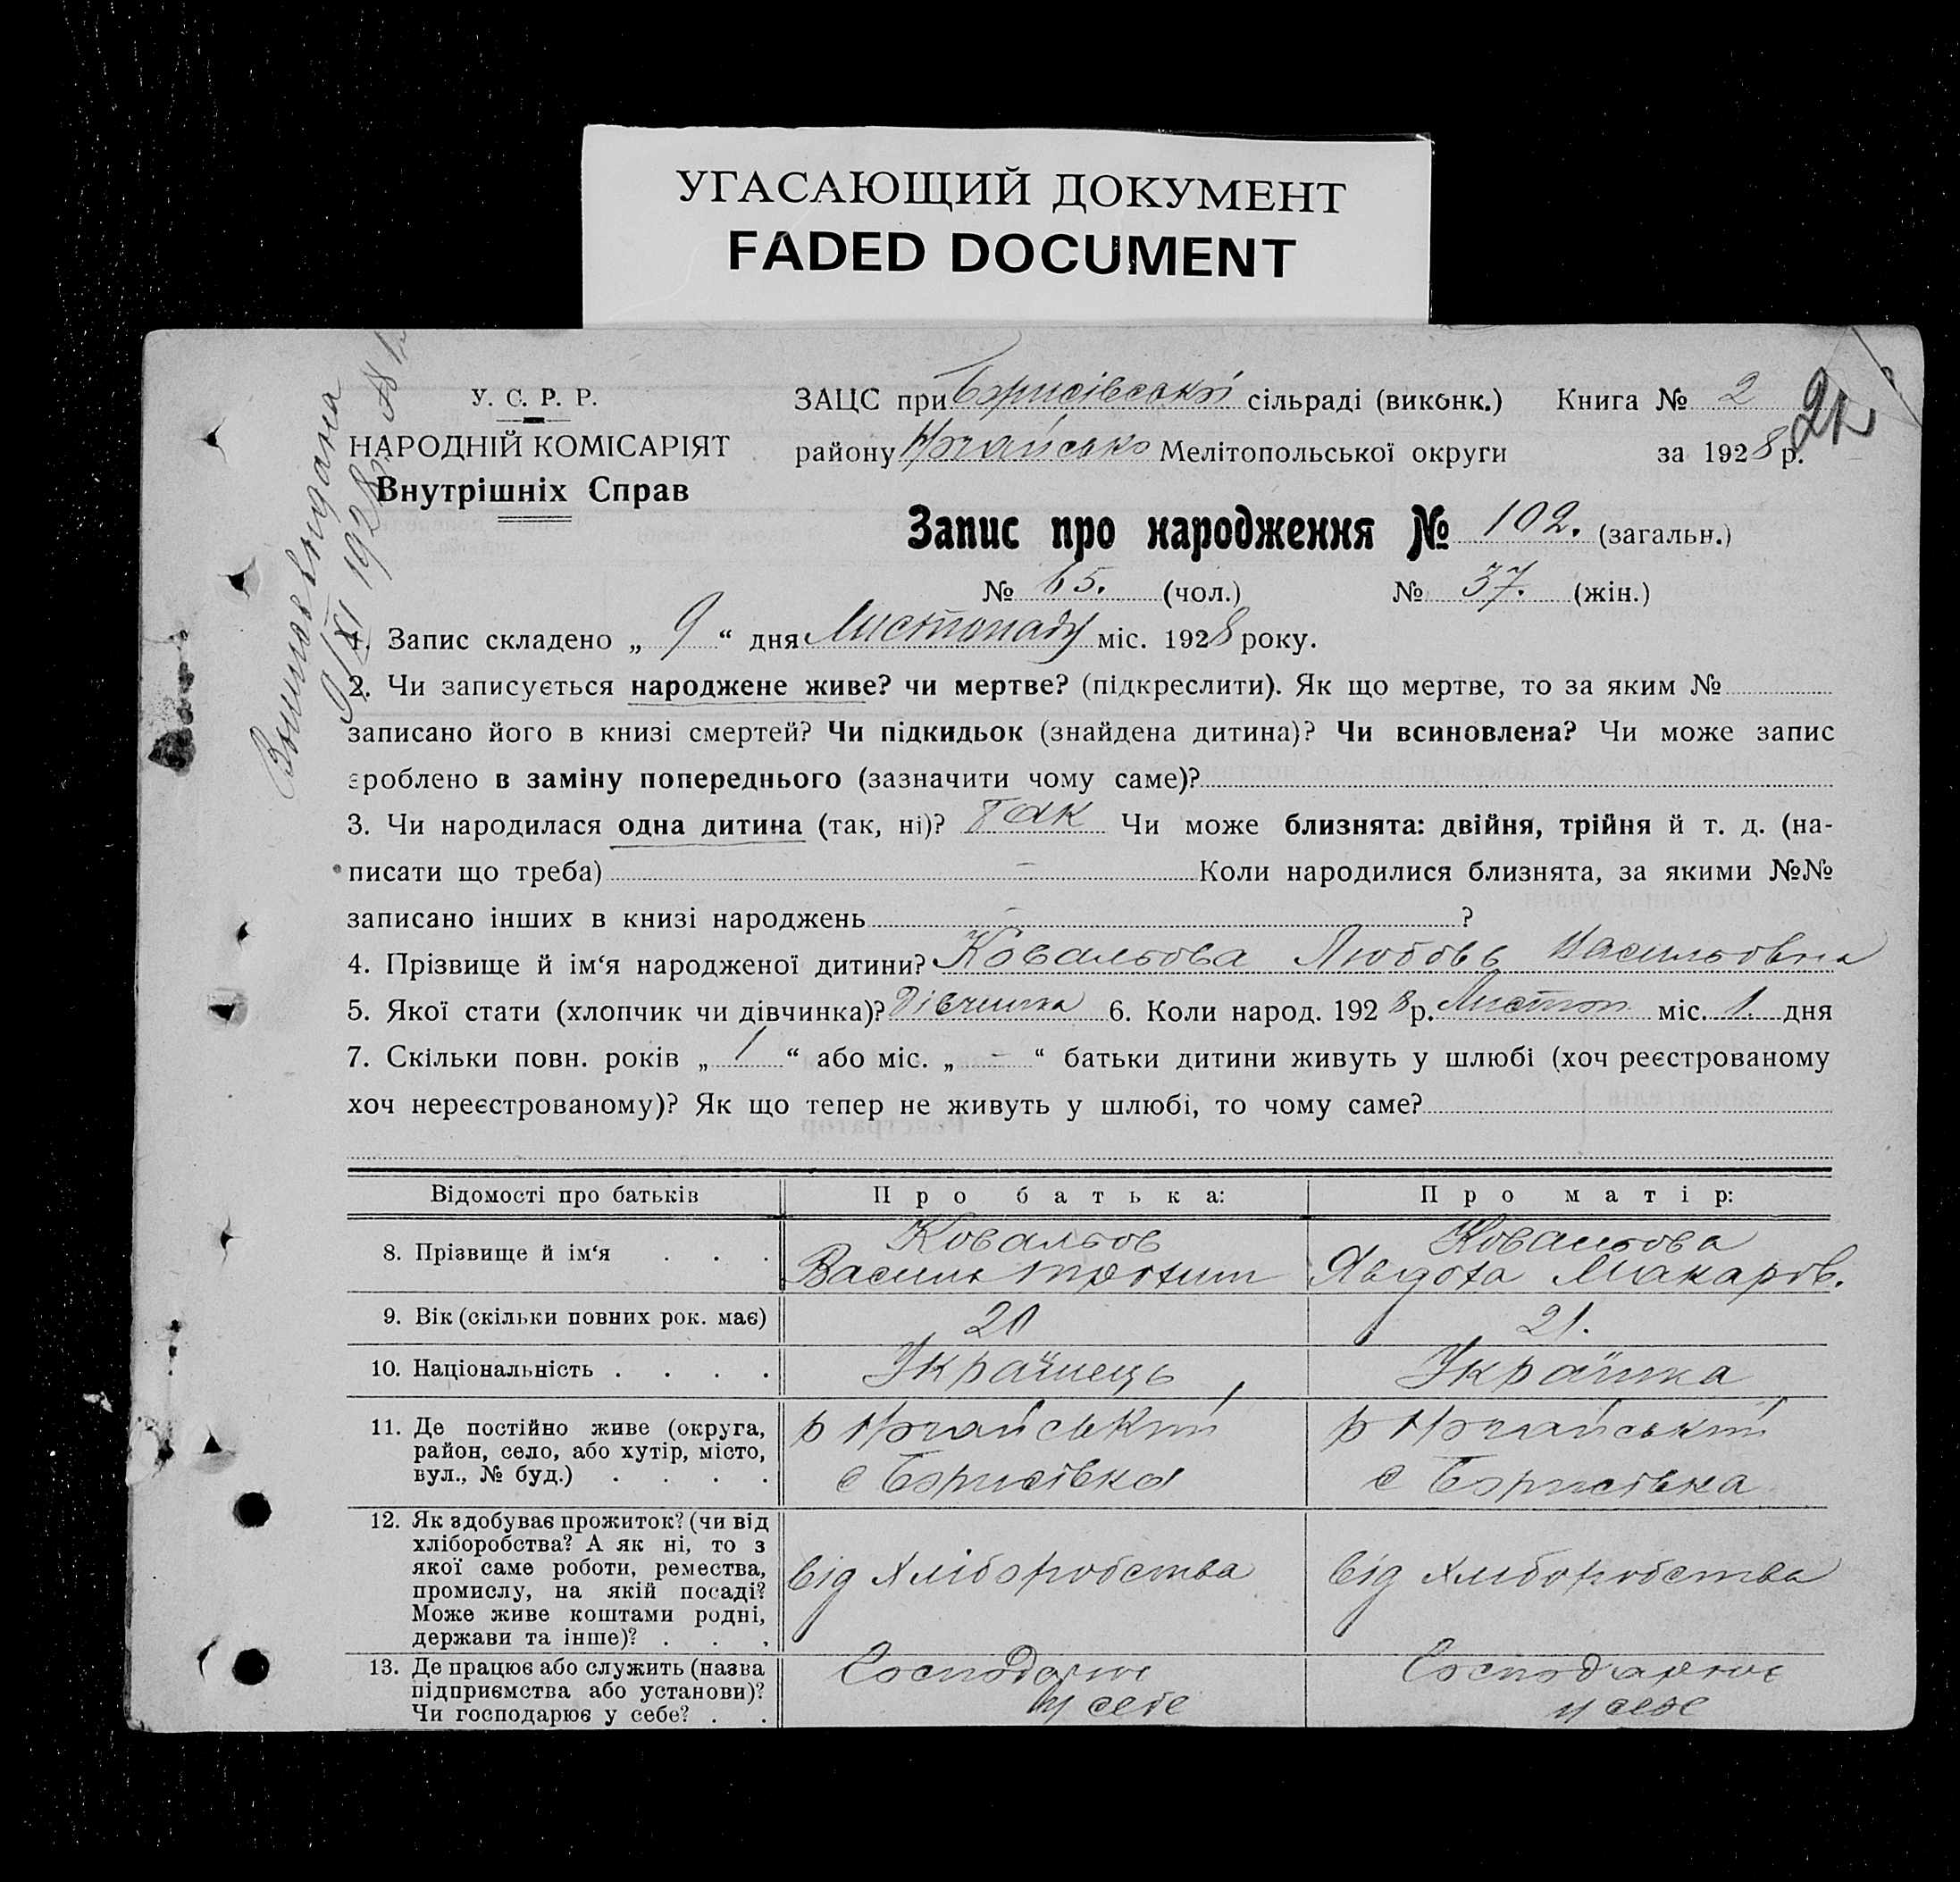 УГАСАЮЩИЙ ДОКУМЕНТ
FADED DOCUMENT
Виписъ видана
9/XI 1928 р. №
У. С. Р. Р.
НАРОДНІЙ КОМІСАРІЯТ
Внутрішніх Справ
ЗАЦС при Борисівській сільраді (виконк.) Книга № 2
21
району Мелітопольської округи за 1928 р.
Запис про народження № 102. (загальн.)
№ 65. (чол.) № 37. (жін.)
1. Запис складено „ 9 “ дня Листопаду міс. 1928 року.
2. Чи записується народжене живе? чи мертве? (підкреслити). Як що мертве, то за яким №
записано його в книзі смертей? Чи підкидьок (знайдена дитина)? Чи всиновлена? Чи може запис
зроблено в заміну попереднього (зазначити чому саме)?
3. Чи народилася одна дитина (так, ні)? Так Чи може близнята: двійня, трійня й т. д. (на-
писати що треба) – Коли народилися близнята, за якими №№
записано інших в книзі народжень – ?
4. Прізвище й ім‘я народженої дитини? Ковальова Любовь Васильовна
5. Якої стати (хлопчик чи дівчинка)? Дівчинка 6. Коли народ. 1928 р. Листоп міс. 1. дня
7. Скільки повн. років „ 1 “ або міс. „ - “ батьки дитини живуть у шлюбі (хоч реєстрованому
хоч нереєстрованому)? Як що тепер не живуть у шлюбі, то чому саме?
Відомості про батьків Про батька: Про матір:
8. Прізвище й ім‘я . . . Ковальов Ковальова
Василь Явдоха Макаров.
9. Вік (скільки повних рок. має) 20 21.
10. Національність . . . . Українець Українка
11. Де постійно живе (округа,
район, село, або хутір, місто,
вул., № буд.) . . . .
с Борисівка с Борисівка
12. Як здобуває прожиток? (чи від
хліборобства? А як ні, то з
якої саме роботи, ремества,
промислу, на якій посаді?
Може живе коштами родні,
держави та інше)? . . .
від хліборобства від хліборобства
13. Де працює або служить (назва
підприємства або установи)?
Чи господарює у себе? . .
Господарює Господарює
у себе у себе